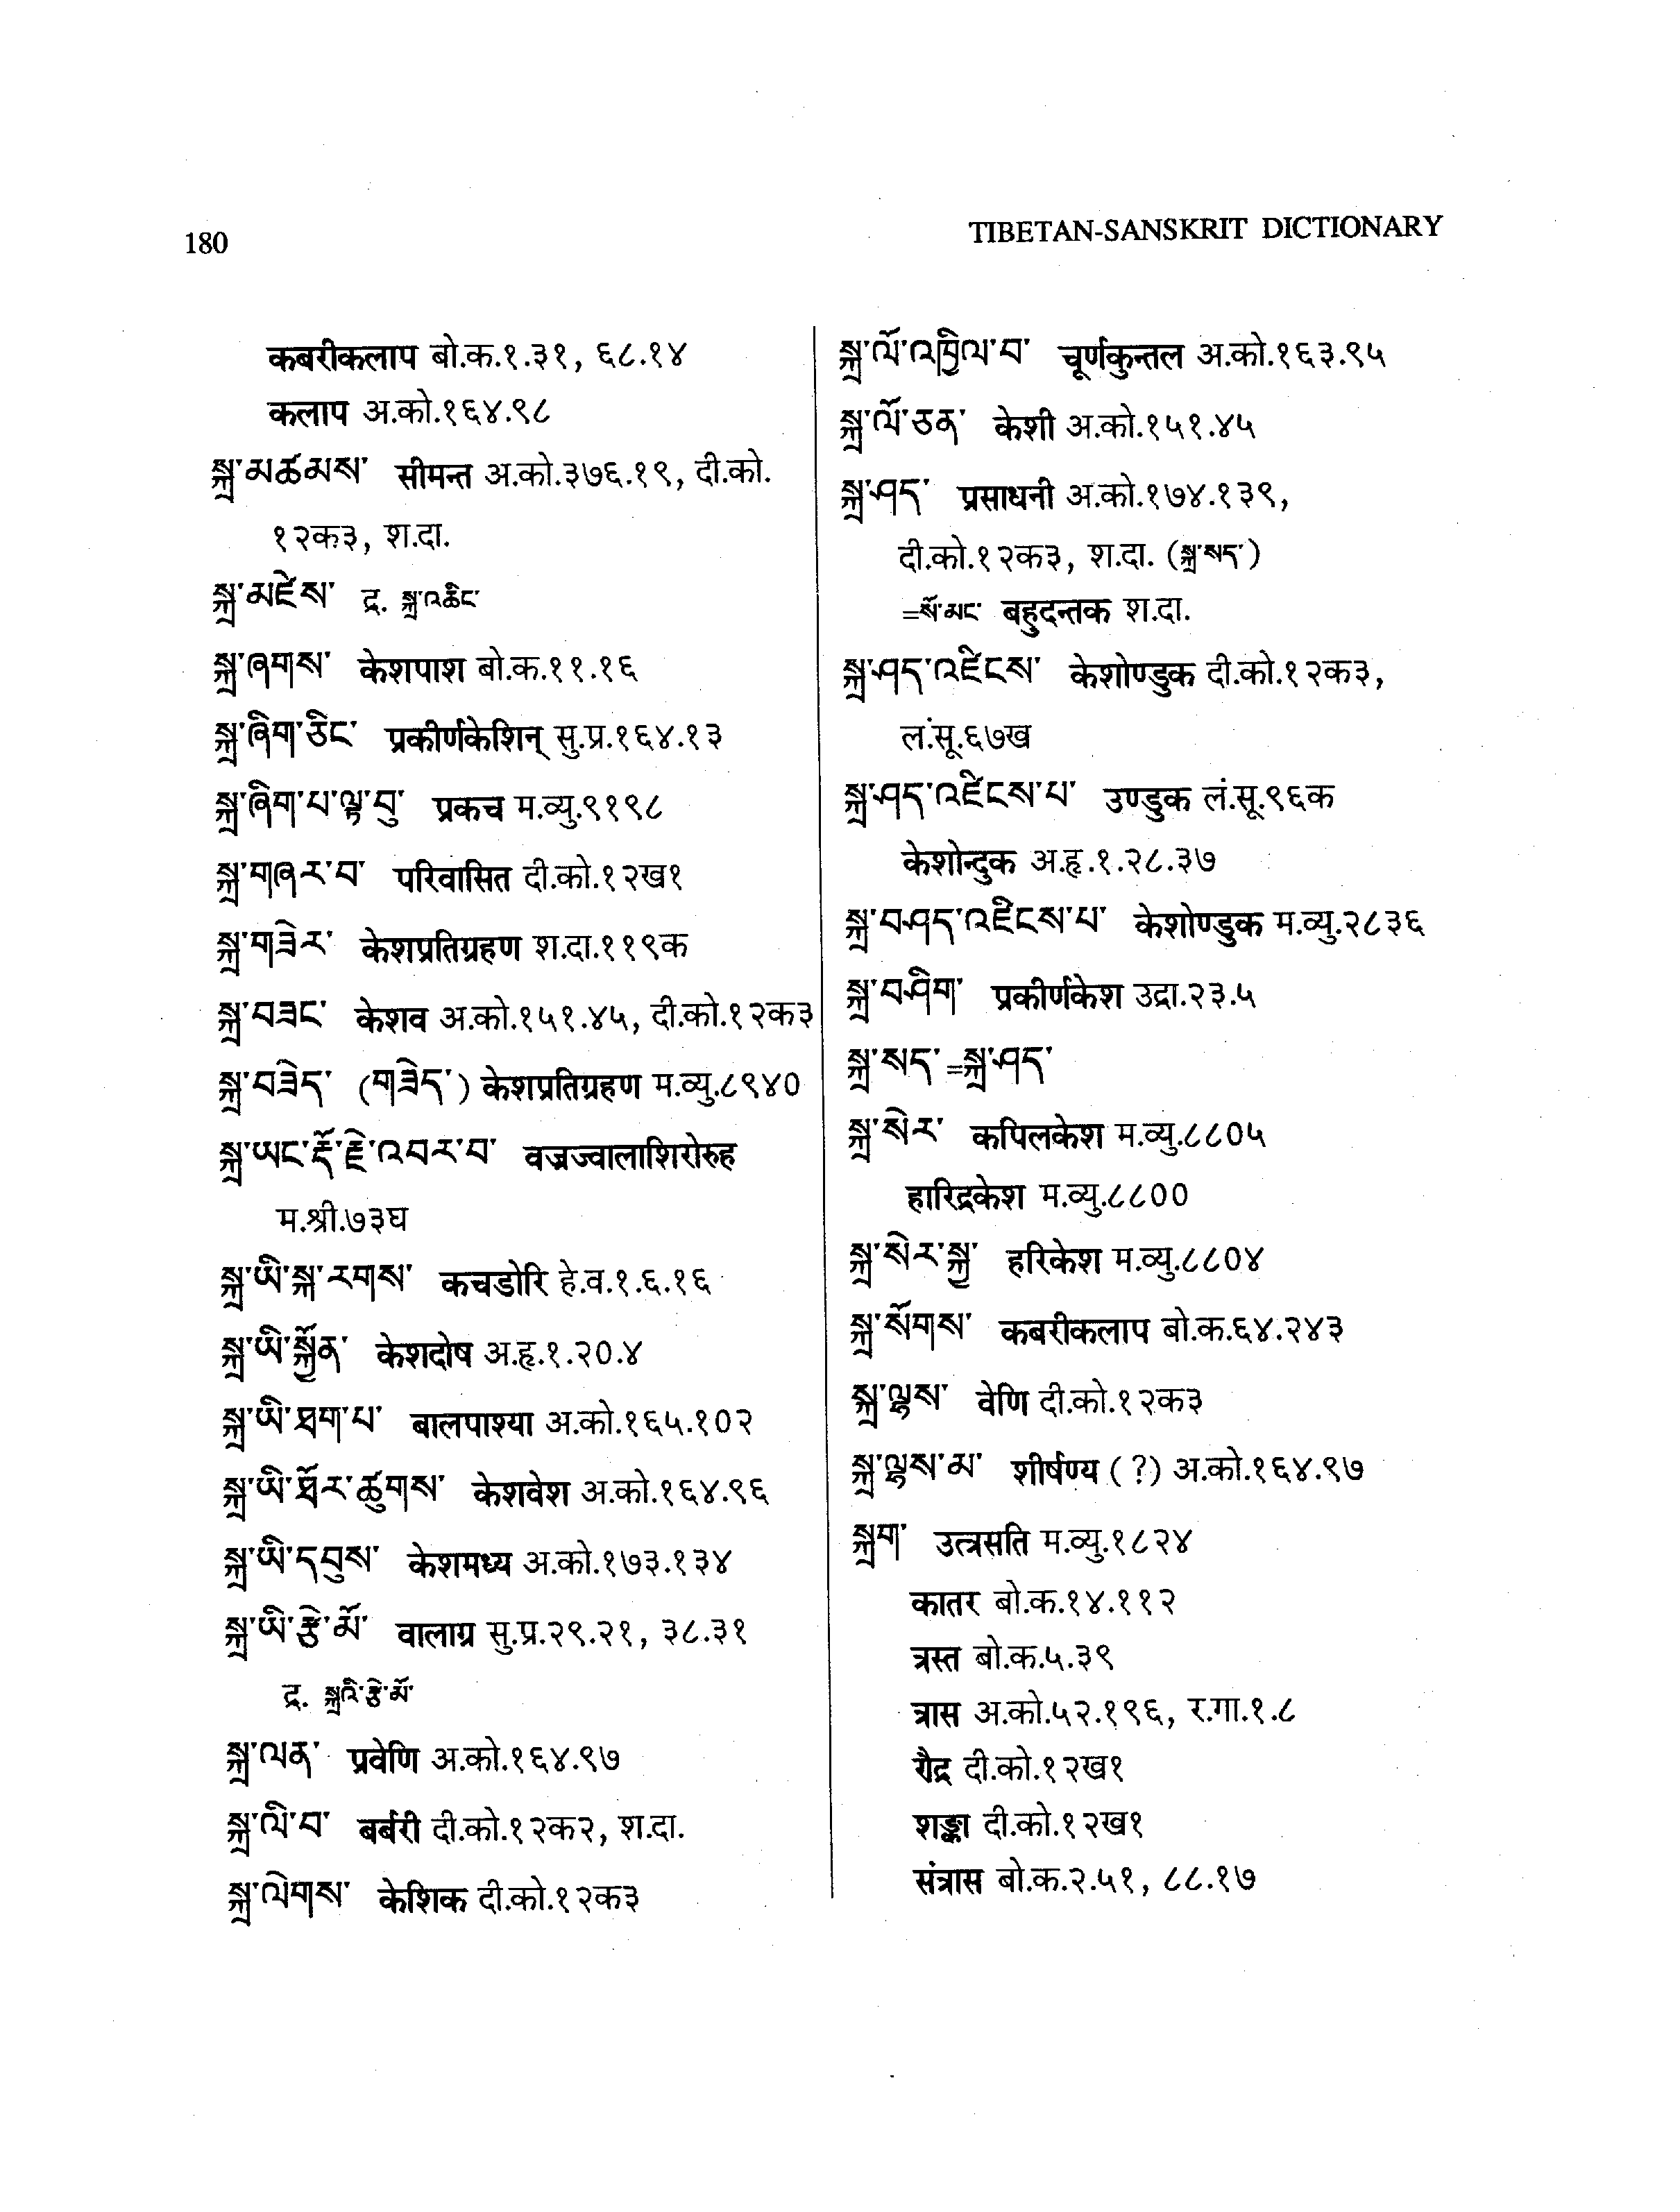 180
TIBETAN-SANSKRIT DICTIONARY
कबरीकलाप बो.क.१.३१, ६८.१४
कलाप अ.को.१६४.९८
སྐྲ་མཚམས་ सीमन्त अ.को.३७६.१९, दी.को.
१२क३, श.दा.
སྐྲ་མཛེས་ द्र. སྐྲ་འཆིང་
སྐྲ་ཞགས་ केशपाश बो.क.११.१६
སྐྲ་ཞིག་ཅིང་ प्रकीर्णकेशिन् सु.प्र.१६४.१३
སྐྲ་ཞིག་པ་ལྟ་བུ་ प्रकच म.व्यु.९१९८
སྐྲ་གཞར་བ་ परिवासित दी.को.१२ख१
སྐྲ་གཟེར་ केशप्रतिग्रहण श.दा.११९क
སྐྲ་བཟང་ केशव अ.को.१५१.४५, दी.को.१२क३
སྐྲ་བཟེད་ (གཟེད་) केशप्रतिग्रहण म.व्यु.८९४०
སྐྲ་ཡང་རྡོ་རྗེ་འབར་བ་ वज्रज्वालाशिरोरुह
म.श्री.७३घ
སྐྲ་ཡི་སྐ་རགས་ कचडोरि हे.व.१.६.१६
སྐྲ་ཡི་སྐྱོན་ केशदोष अ.हृ.१.२०.४
སྐྲ་ཡི་ཐག་པ་ बालपाश्या अ.को.१६५.१०२
སྐྲ་ཡི་ཐོར་ཚུགས་ केशवेश अ.को.१६४.९६
སྐྲ་ཡི་དབུས་ केशमध्य अ.को.१७३.१३४
སྐྲ་ཡི་རྩེ་མོ་ वालाग्र सु.प्र.२९.२१, ३८.३१
द्र. སྐྲའི་རྩེ་མོ་
སྐྲ་ལན་ प्रवेणि अ.को.१६४.९७
སྐྲ་ལི་བ་ बर्बरी दी.को.१२क२, श.दा.
སྐྲ་ལེགས་ केशिक दी.को.१२क३
སྐྲ་ལོ་འཁྱིལ་བ་ चूर्णकुन्तल अ.को.१६३.९५
སྐྲ་ལོ་ཅན་ केशी अ.को.१५१.४५
སྐྲ་ཤད་ प्रसाधनी अ.को.१७४.१३९,
दी.को.१२क३, श.दा. (སྐྲ་སད་)
=སོ་མང་ बहुदन्तक श.दा.
སྐྲ་ཤད་འཛིངས་ केशोण्डुक दी.को.१२क३,
लं.सू.६७ख
སྐྲ་ཤད་འཛིངས་པ་ उण्डुक लं.सू.९६क
केशोन्दुक अ.हृ.१.२८.३७
སྐྲ་བཤད་འཛིངས་པ་ केशोण्डुक म.व्यु.२८३६
སྐྲ་བཤིག་ प्रकीर्णकेश उद्रा.२३.५
སྐྲ་སད་=སྐྲ་ཤད་
སྐྲ་སེར་ कपिलकेश म.व्यु.८८०५
हारिद्रकेश म.व्यु.८८००
སྐྲ་སེར་སྐྱ་ हरिकेश म.व्यु.८८०४
སྐྲ་སོགས་ कबरीकलाप बो.क.६४.२४३
སྐྲ་ལྷས་ वेणि दी.को.१२क३
སྐྲ་ལྷས་མ་ शीर्षण्य (?) अ.को.१६४.९७
སྐྲག་ उत्त्रसति म.व्यु.१८२४
कातर बो.क.१४.११२
त्रस्त बो.क.५.३९
त्रास अ.को.५२.१९६, र.गा.१.८
रौद्र दी.को.१२ख१
शङ्का दी.को.१२ख१
संत्रास बो.क.२.५१, ८८.१७